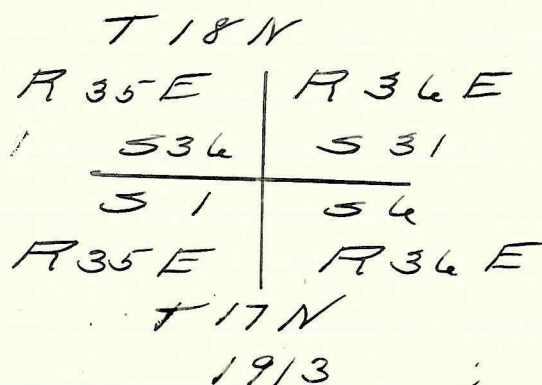 T 18 N
R 35 E R 36 E
S 36 S 31
S 1 S 6
R 35 E R 36 E
T 17 N
1913